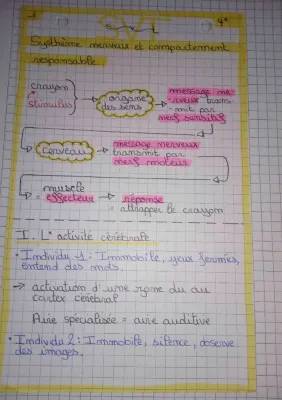 4e
SVT
Systhème nerveux et comportement
responsable.
crayon
= stimulus
organe
des sens
message ner-
-veux trans-
-mit par
nerf sensitif
cerveau
message nerveux
transmit par
nerf moteur
muscle
= effecteur
réponse
= attrapper le crayon
I. L'activité cérébrale
• Individu 1 : Immobile, yeux fermés,
entend des mots.
→ activation d'une zone du
cortex cérébral
Aire spécialisée = aire auditive
• Individu 2 : Immobile, silence, observe
des images.